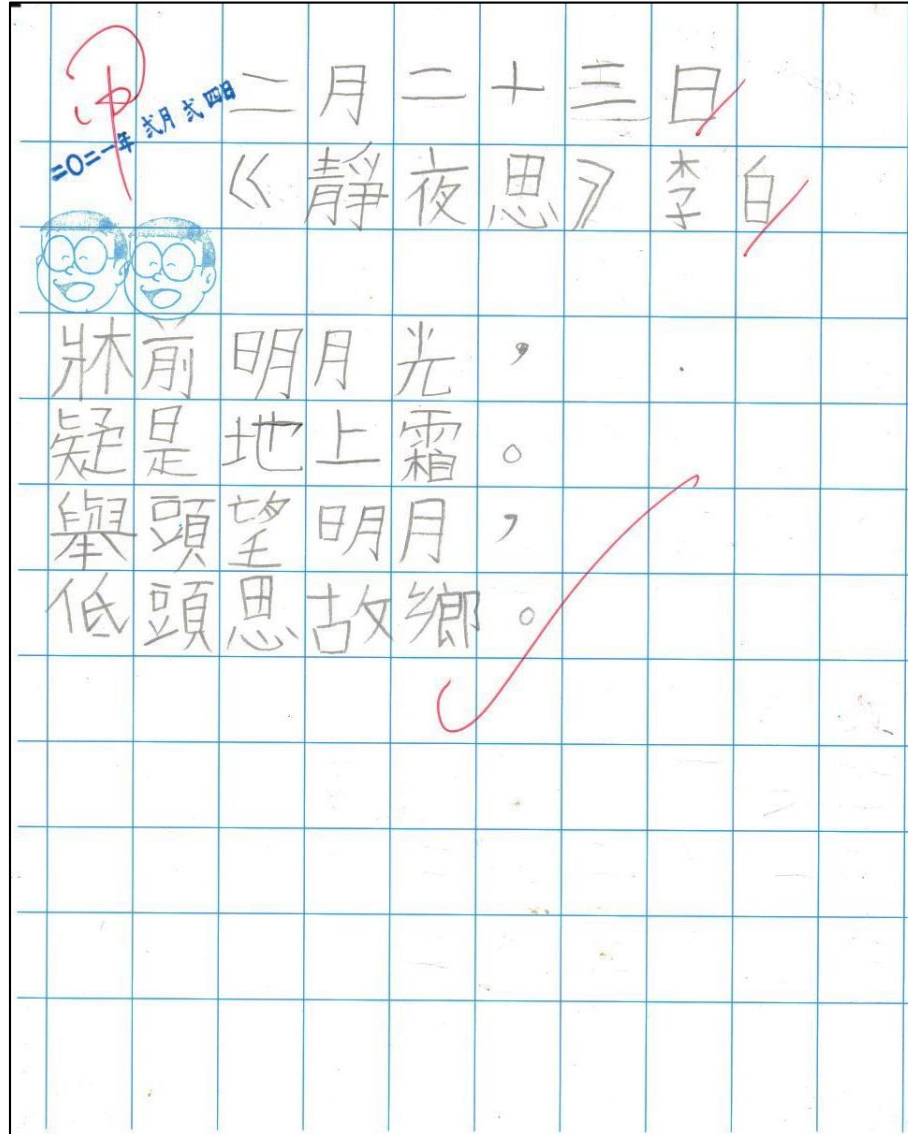 甲
二〇二一年 弍月 弍四日
二月二十三日
《靜夜思》李白
牀前明月光，
疑是地上霜。
舉頭望明月，
低頭思故鄉。